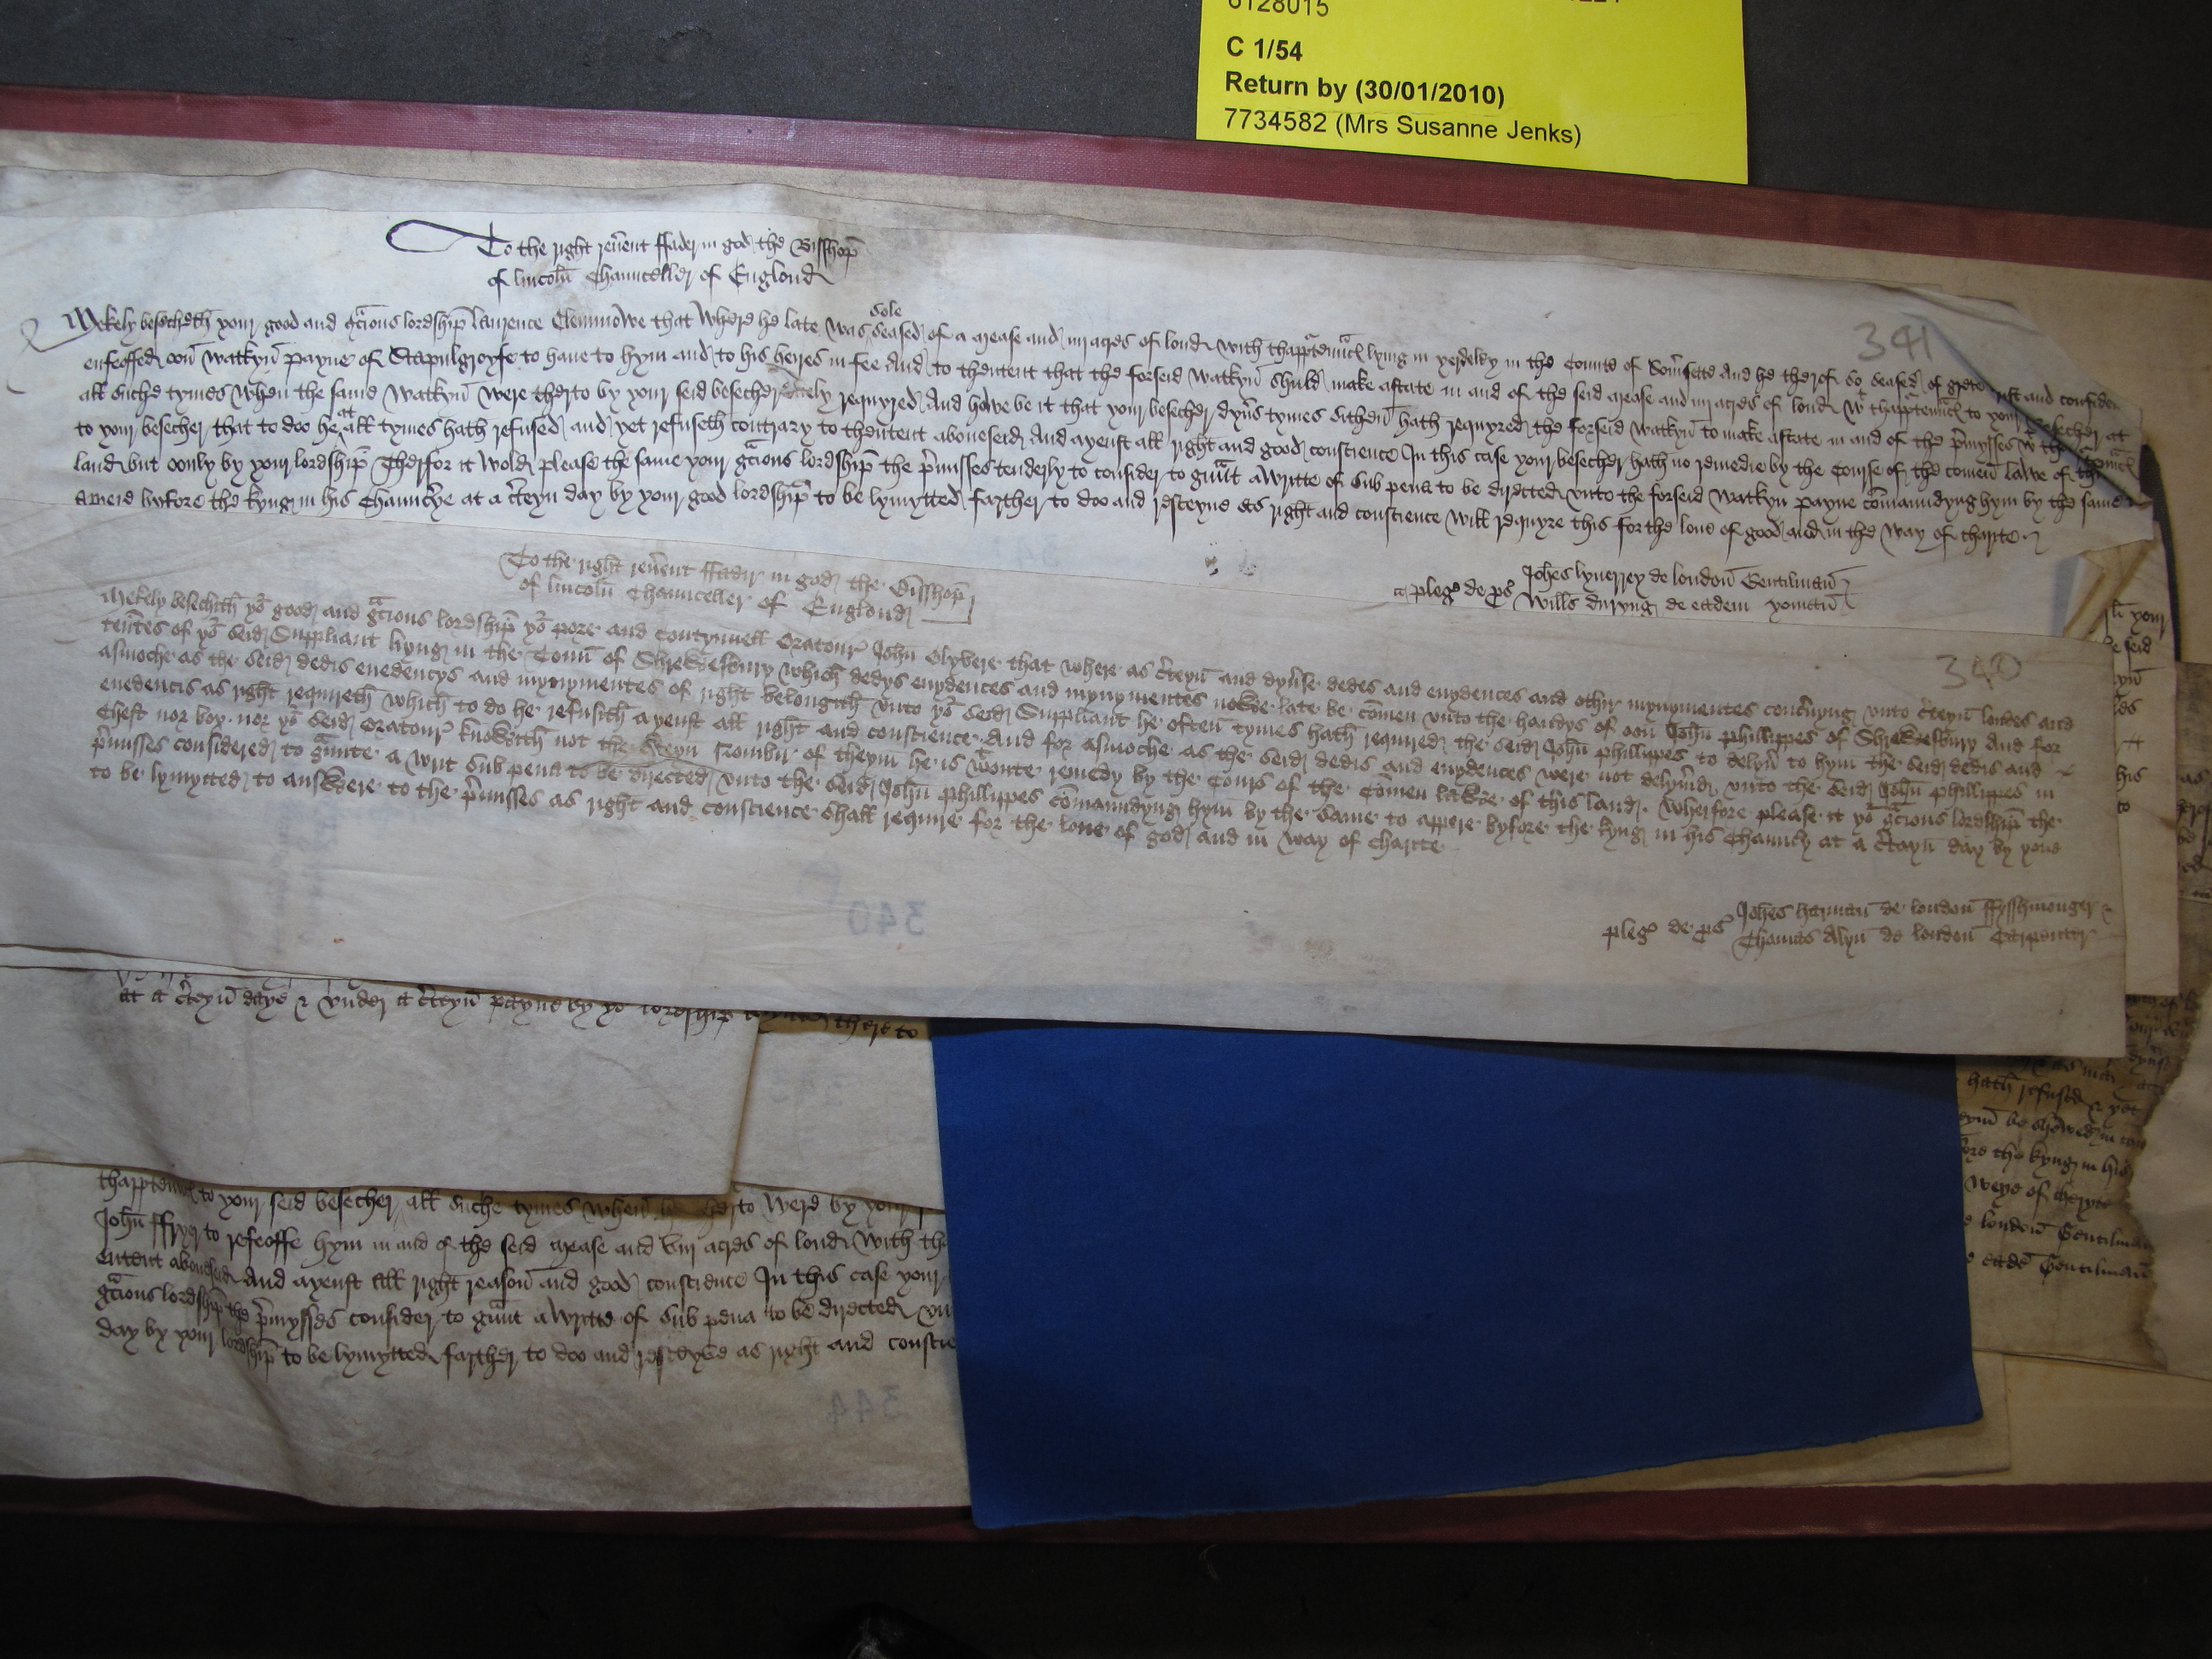 6128015
C 1/54
Return by (30/01/2010)
7734582 (Mrs Susanne Jenks)
To the right reu̅ent ffader in god the Bisshop̅
of lincoln̅ Chaunceller of Englond
341
Mekely besecheth your good and gr̅cious lordship̅ laurence Clemmowe that where he late was sole seased of a mease and iiij acres of lond with thapp̅ten̅ncℓ lying in yerdeley in the Counte of Som̅sette And he therof so seased of grete trust and confidenc
enfeoffed oon watkyn̅ payne of Stapulgroyfe to haue to hym and to his heires in fee And to thentent that the forseid watkyn̅ shuld make astate in and of the seid mease and iiij acres of lond wt thapp̅ten̅ncℓ to your besecher at
all suche tymes when the same watkyn̅ were therto by your seid besecher requyred And howe be it that your besecher dyu̅s tymes sithen̅ hath requyred the forseid watkyn̅ to make astate in and of the p̅mysses wt the
to your besecher that to doo he at all tymes hath refused and yet refuseth contrary to thentent aboueseid And ayenst all right and good conscience In this case your besecher hath no remedie by the Course of the comen̅ lawe of this
land but oonly by your lordship̅ Therfor it wold please the same your gr̅cious lordship̅ the p̅misses tenderly to consider to gr̅unt a writte of sub pena to be directed vnto the forseid watkyn payne com̅aundyng hym by the same
apere byfore the kyng in his Chauncrye at a c̅teyn day by your good lordship̅ to be lymytted farther to doo and resceyue as right and conscience will requyre this for the loue of good and in the way of charite
pleg̅ de ps̅ Joh̅es lynerrey de london̅ Gentilman̅
Will̅s duryng de eadem yoman̅
To the right reu̅ent ffadir in god the Bisshop̅
of lincoln̅ Chaunceller of Englond
340
Mekely besechith yor good and gr̅cious lordship̅ yor pore and contynuell Oratour John̅ Olybere that where as c̅teyn̅ and dyu̅se dedes and euydences and othir mynymentes conc̅nyng vnto c̅teyn̅ londes and
ten̅tes of yor seid Suppliant lyyng in the Toun̅ of Shrewesbury which dedys euydences and mynymentes nowe late be com̅en vnto the handys of oon John̅ phillippes of Shrewesbury And for
asmoche as the seid dedis euedencys and mynymentes of right belongith vnto yor seid Suppliant he often tymes hath required the seid John̅ phillippes to delyu̅ to hym the seid dedis and
euedencis as right requireth which to do he refusith ayenst all right and conscience And for asmoche as the seid dedis and euydences were not delyu̅d vnto the seid John̅ phillippes in
Chest nor box nor yor seid Oratour knowith not the c̅teyn Nombir of theym he is wtoute remedy by the Cours of the Com̅en lawe of this land Wherfore please it yor gr̅cious lordship̅ the
p̅misses considered to gr̅unte a writ sub pena to be directed vnto the seid John̅ phillippes com̅aundyng hym by the same to appere byfore the kyng in his Chauncry at a c̅tayn̅ day by youe
to be lymytted to answere to the p̅misses as right and conscience shall require for the loue of god and in way of charite
340
pleg̅ de ps̅ Joh̅es harman̅ de london̅ ffysshmonger
Thomas Alyn̅ de london̅ Carpenter
at a c̅teyn̅ daye & vnder a c̅teyn̅ payne by yor lordship there to
thapp̅ten̅ncℓ to your seid besecher all suche tymes when therto were by your
John̅ ffryer to refeoffe hym in and of the seid mease and viij acres of lond with th
entent aboueseid And ayenst all right reason̅ and good conscience In this case your
gr̅cious lordship̅ the p̅mysses consider to gr̅unt a writte of sub pena to be directed vn
day by your lordship̅ to be lymytted farther to doo and resceyue as right and conscie
344
li your
e seid
his
to
hath refused & yet
be shewed in
ore the kyng in his
weye of charyte
london̅ Gentilman
eade̅ Gentilman̅